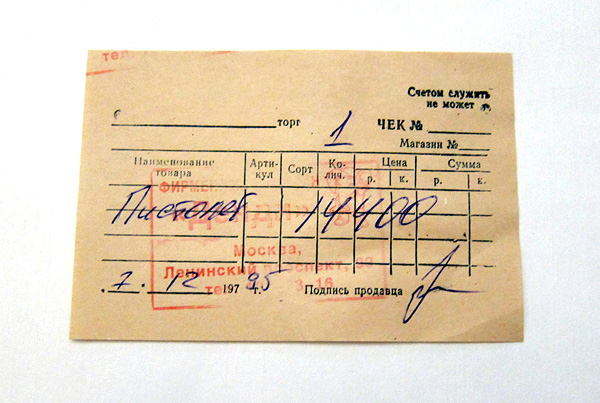 Счетом служить
не может
торг 1 ЧЕК №
Магазин №
Наименование товара Арти- кул Сорт Ко- лич. Цена Сумма
р. к. р. к.
ФИРМЕН
Пистолет 14400
Москва,
Ленинский проспект,
7. 12 197 95 г. Подпись продавца